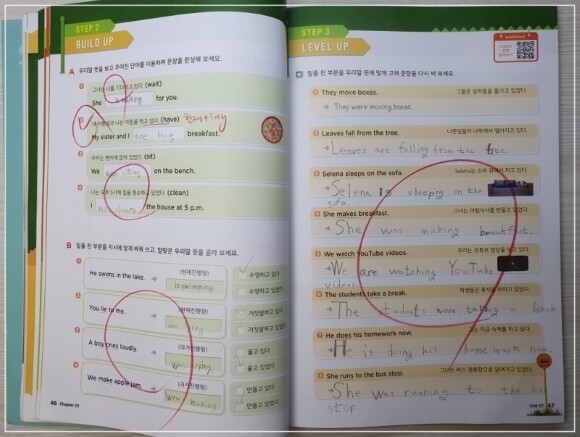 STEP 2
BUILD UP
A 우리말 뜻을 보고 주어진 단어를 이용하여 문장을 완성해 보세요.
그녀는 너를 기다리고 있다 (wait)
She is waiting for you.
내 여동생과 나는 아침을 먹고 있다 (have)
My sister and I are breakfast.
우리는 벤치에 앉아 있었다 (sit)
We on the bench.
나는 오후 5시에 집을 청소하고 있었다 (clean)
I the house at 5 p.m.
B 밑줄 친 부분을 지시에 맞게 바꿔 쓰고, 알맞은 우리말 뜻을 골라 보세요.
He swims in the lake. → (현재진행형) is swimming
수영하고 있다
수영하고 있었다
You lie to me. → (현재진행형)
거짓말하고 있다
거짓말하고 있었다
A boy cries loudly. → (과거진행형) was crying
울고 있다
울고 있었다
We make apple jam. → (과거진행형) making
만들고 있다
만들고 있었다
46 Chapter 03
STEP 3
LEVEL UP
밑줄 친 부분을 우리말 뜻에 맞게 고쳐 문장을 다시 써 보세요.
They move boxes. 그들은 상자들을 옮기고 있었다
→ They were moving boxes.
Leaves fall from the tree. 나뭇잎들이 나무에서 떨어지고 있다
→ Leaves are falling from the tree.
Selena sleeps on the sofa. Selena는 소파 위에서 자고 있다
→ Selena is sleeping on the
sofa.
She makes breakfast. 그녀는 아침식사를 만들고 있었다
→ She was making breakfast.
We watch YouTube videos. 우리는 유튜브 영상을 보고 있다
→ We are watching YouTube
videos.
The students take a break. 학생들은 휴식을 취하고 있었다
→ The students were taking a break
He does his homework now. 그는 지금 숙제를 하고 있다
→ He is doing his homework now.
She runs to the bus stop. 그녀는 버스 정류장으로 달려가고 있었다
→ She was running to the bus
stop.
Unit 07 47